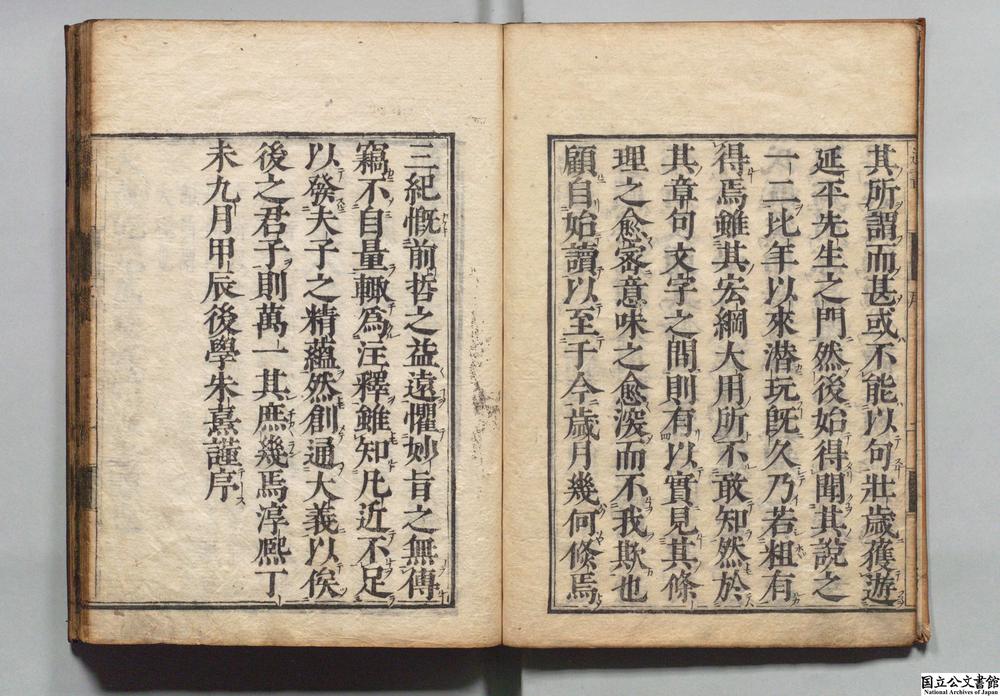 其所謂而甚或不能以句壯歲獲遊
延平先生之門然後始得聞其說之
一二比年以來潛玩既久乃若粗有
得焉雖其宏綱大用所不敢知然於
其章句文字之間則有以實見其條
理之愈密意味之愈深而不我欺也
顧自始讀以至于今歲月幾何倏焉
三紀慨前哲之益遠懼妙旨之無傳
竊不自量輙為注釋雖知凡近不足
以發夫子之精蘊然創通大義以俟
後之君子則萬一其庶幾焉淳熈丁
未九月甲辰後學朱熹謹序
国立公文書館
National Archives of Japan